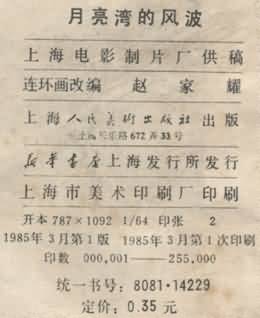 月亮湾的风波
上海电影制片厂供稿
连环画改编 赵家耀
上海人民美术出版社出版
上海长乐路672弄33号
新华书店上海发行所发行
上海市美术印刷厂印刷
开本787×1092 1/64 印张 2
1985年3月第1版 1985年3月第1次印刷
印数 000,001——255,000
统一书号：8081·14229
定价：0.35元